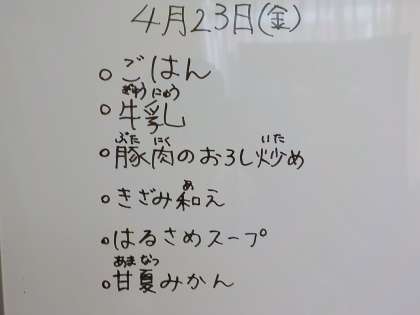 4月23日(金)
○ ごはん
ぎゅうにゅう
○ 牛乳
ぶた にく いた
○ 豚肉のおろし炒め
あ
○ きざみ和え
○ はるさめスープ
あまなつ
○ 甘夏みかん